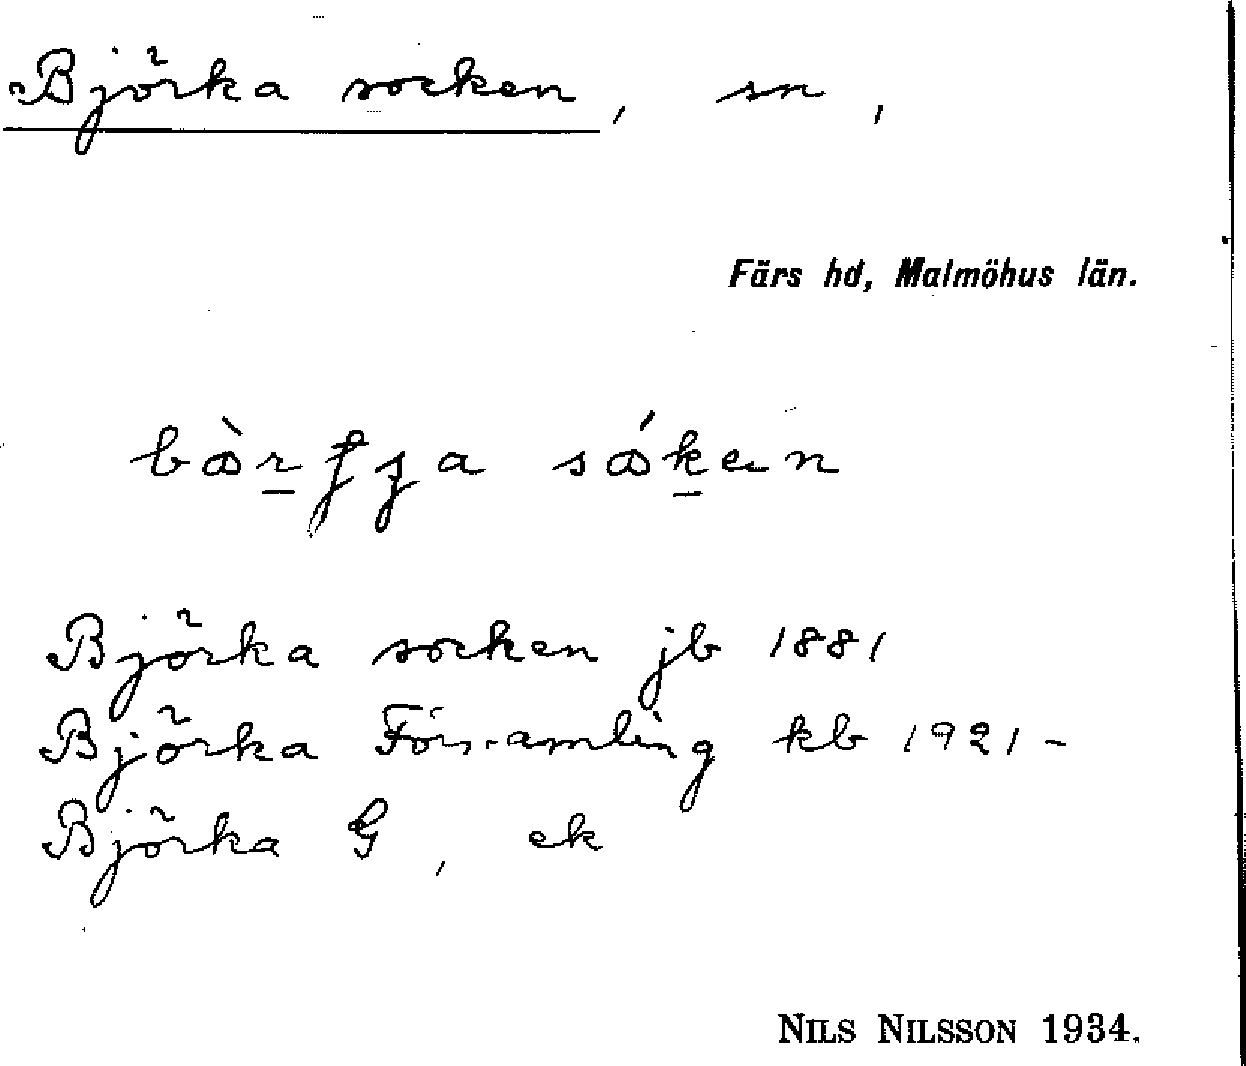 Björka socken, sn,
Färs hd, Malmöhus län.
Björka socken jb 1881
Björka Församling kb 1921-
Björka G, ek
NILS NILSSON 1934.